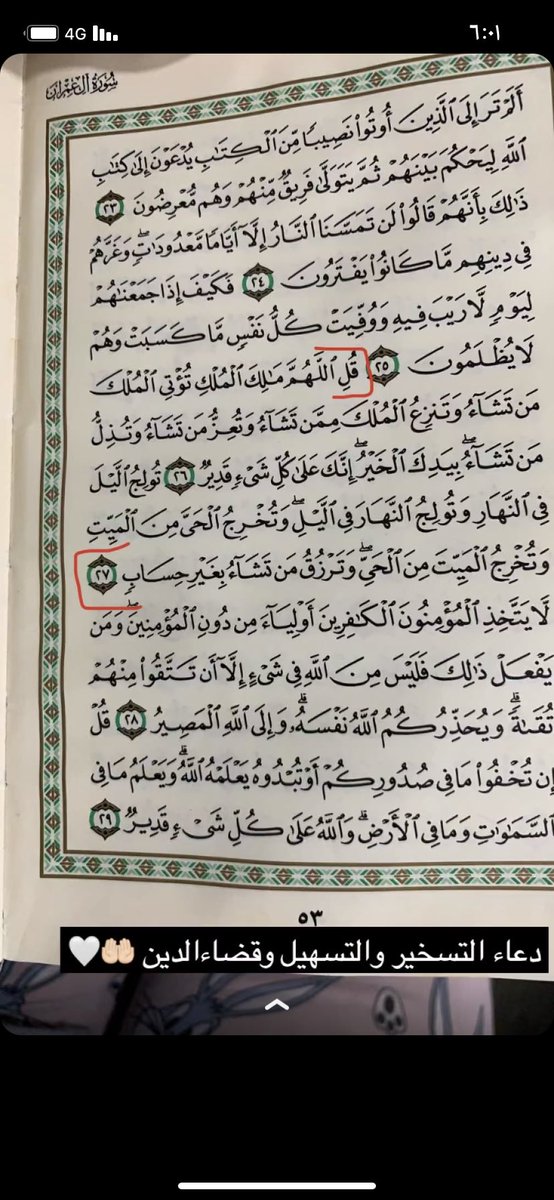 4G
٦:٠١
سُورَةُ آلِ عِمْرَانَ
أَلَمْ تَرَ إِلَى ٱلَّذِينَ أُوتُوا۟ نَصِيبًا مِّنَ ٱلْكِتَٰبِ يُدْعَوْنَ إِلَىٰ كِتَٰبِ
ٱللَّهِ لِيَحْكُمَ بَيْنَهُمْ ثُمَّ يَتَوَلَّىٰ فَرِيقٌ مِّنْهُمْ وَهُم مُّعْرِضُونَ ٢٣
ذَٰلِكَ بِأَنَّهُمْ قَالُوا۟ لَن تَمَسَّنَا ٱلنَّارُ إِلَّآ أَيَّامًا مَّعْدُودَٰتٍ ۖ وَغَرَّهُمْ
فِى دِينِهِم مَّا كَانُوا۟ يَفْتَرُونَ ٢٤ فَكَيْفَ إِذَا جَمَعْنَٰهُمْ
لِيَوْمٍ لَّا رَيْبَ فِيهِ وَوُفِّيَتْ كُلُّ نَفْسٍ مَّا كَسَبَتْ وَهُمْ
لَا يُظْلَمُونَ ٢٥ قُلِ ٱللَّهُمَّ مَٰلِكَ ٱلْمُلْكِ تُؤْتِى ٱلْمُلْكَ
مَن تَشَآءُ وَتَنزِعُ ٱلْمُلْكَ مِمَّن تَشَآءُ وَتُعِزُّ مَن تَشَآءُ وَتُذِلُّ
مَن تَشَآءُ ۖ بِيَدِكَ ٱلْخَيْرُ ۖ إِنَّكَ عَلَىٰ كُلِّ شَىْءٍ قَدِيرٌ ٢٦ تُولِجُ ٱلَّيْلَ
فِى ٱلنَّهَارِ وَتُولِجُ ٱلنَّهَارَ فِى ٱلَّيْلِ ۖ وَتُخْرِجُ ٱلْحَىَّ مِنَ ٱلْمَيِّتِ
وَتُخْرِجُ ٱلْمَيِّتَ مِنَ ٱلْحَىِّ ۖ وَتَرْزُقُ مَن تَشَآءُ بِغَيْرِ حِسَابٍ ٢٧
لَّا يَتَّخِذِ ٱلْمُؤْمِنُونَ ٱلْكَٰفِرِينَ أَوْلِيَآءَ مِن دُونِ ٱلْمُؤْمِنِينَ ۖ وَمَن
يَفْعَلْ ذَٰلِكَ فَلَيْسَ مِنَ ٱللَّهِ فِى شَىْءٍ إِلَّآ أَن تَتَّقُوا۟ مِنْهُمْ
تُقَىٰةً ۗ وَيُحَذِّرُكُمُ ٱللَّهُ نَفْسَهُۥ ۗ وَإِلَى ٱللَّهِ ٱلْمَصِيرُ ٢٨ قُلْ
إِن تُخْفُوا۟ مَا فِى صُدُورِكُمْ أَوْ تُبْدُوهُ يَعْلَمْهُ ٱللَّهُ ۗ وَيَعْلَمُ مَا فِى
ٱلسَّمَٰوَٰتِ وَمَا فِى ٱلْأَرْضِ ۗ وَٱللَّهُ عَلَىٰ كُلِّ شَىْءٍ قَدِيرٌ ٢٩
٥٣
دعاء التسخير والتسهيل وقضاءالدين 🤲🏻🤍